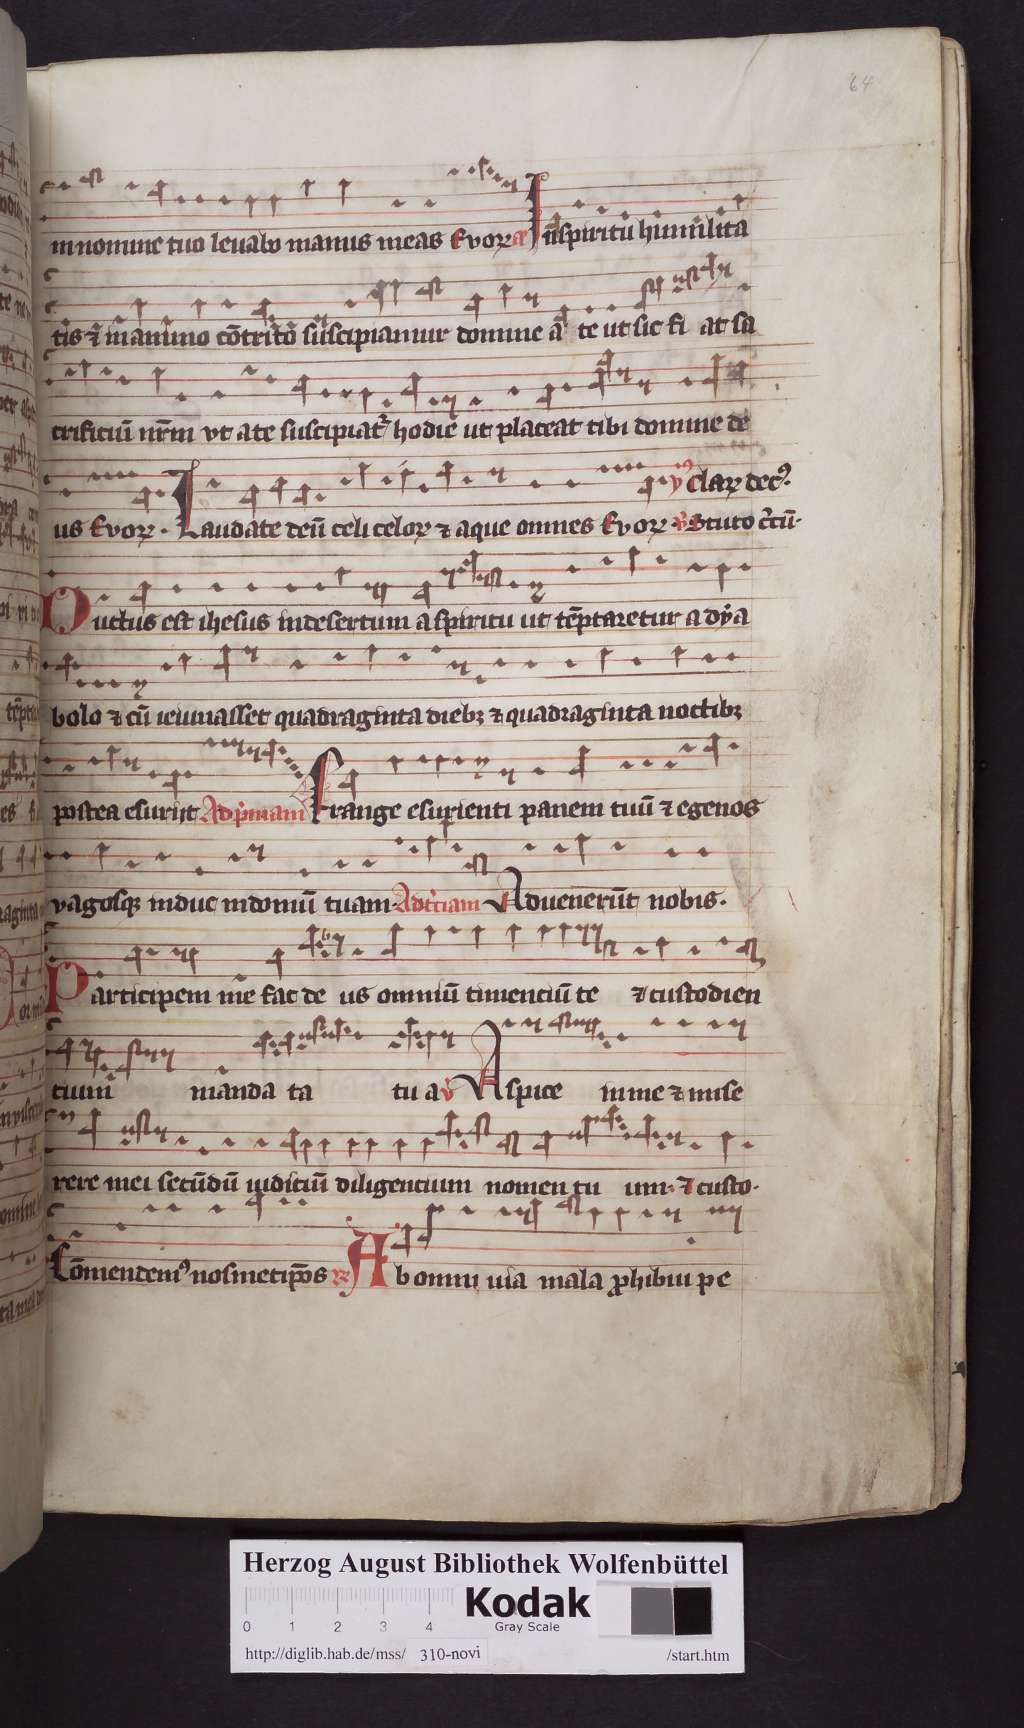 64
in nomine tuo leuabo manus meas Euoꝝ Jn spiritu humilita
tis ⁊ in animo cōtrito suscipiamur domine a te ut sic fi at sa
crificiū nr̄m vt a te suscipiat᷑ hodie ut placeat tibi domine de
clar dec⁹.
us Euoꝝ. Laudate deū celi celoꝝ ⁊ aque omnes Euoꝝ
Ductus est ihesus in desertum a spiritu ut tēptaretur a dya
bolo ⁊ cū ieiunasset quadraginta dieb⁊ ⁊ quadraginta noctib⁊
postea esuriit Ad p̄mam Frange esurienti panem tuū ⁊ egenos
vagosq⁊ induc in domū tuam. Ad tͨiam Aduenerūt nobis.
Participem me fac de us omniū timentiū te ⁊ custodien
tium manda ta tu a v̄ Aspice in me ⁊ mise
rere mei secūdū iudiciū diligentium nomen tu um. ⁊ custo.
Cōmendem⁹ nosmetip̄os ℞ Ab omni uia mala ꝓhibui pe
Herzog August Bibliothek Wolfenbüttel
0 1 2 3 4
Kodak
Gray Scale
http://diglib.hab.de/mss/ 310-novi /start.htm